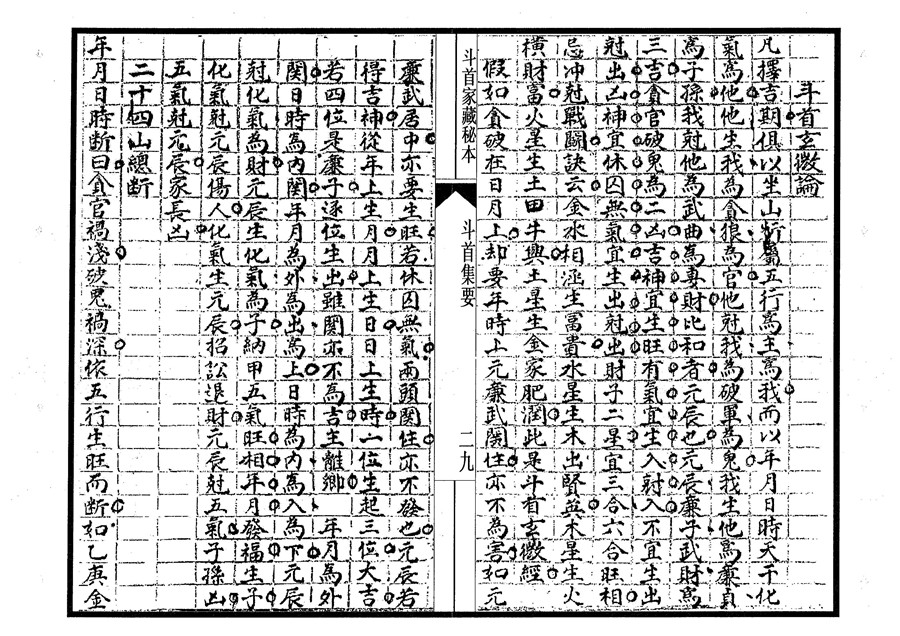 斗首玄微論
凡擇吉期俱以坐山所屬五行為主為我而以年月日時天干化
氣為他他生我為貪狼為官他尅我為破軍為鬼我生他為廉貞
為子孫我尅他為武曲為專財比和者元辰也元辰廉子武財為
三吉貪官破鬼為二凶吉神宜生旺有氣宜生入尅入不宜生出
尅出凶神宜休囚無氣宜生出尅出財子二星宜三合六合旺相
忌冲尅戰鬪訣云金水相涵生富貴水星生木出賢英木星生火
橫財富火星生土田牛興土星生金家肥潤此是斗首玄微經
假如貪破在日月上却要年時上元廉武関住亦不為害如元
斗首家藏秘本
斗首集要
二九
廉武居中亦要生旺若休囚無氣兩頭関住亦不發也元辰若
得吉神從年上生月月上生日日上生時一位生起三位大吉
若四位是廉子逐位生出雖関亦不為吉主離鄉 年月為外
関日時為內関年月為外為出為上日時為內為入為下元辰
尅化氣為財元辰生化氣為子納甲五氣旺相年月發福生子
化氣尅元辰傷人化氣生元辰招訟退財元辰尅五氣子孫凶
五氣尅元辰家長凶
二十四山總斷
年月日時斷曰貪官禍淺破鬼禍深依五行生旺而斷如乙庚金